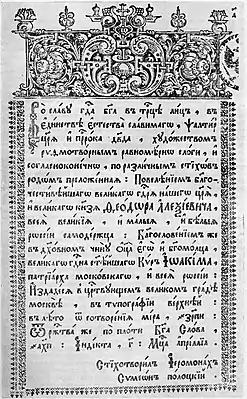 Во славу гда бга въ трце лицъ, въ
единстве естества славимагω, ѱалтирь
црѧ и прⷪ҇рока двда, художествомъ
риѳмотворнымъ равномернω слоги, и
согласноконечнω, по различнымъ стіхωвъ
родωмъ преложеннаѧ. Повеленіемъ благо-
честивейшагω великагω гдрѧ нашегω црѧ
и великагω кнѧзѧ Ѳеодωра алеѯіевича,
всеѧ великіѧ, и малыѧ, и белыѧ
рωсіи самодержца: Благословеніемъ же
въ дховномъ чину оца егω и бгомолца
великагω гдна стейшагω Кѵръ Іωакіма,
патріарха московскагω, и всеѧ рωсіи:
Издадесѧ в црствующемъ великомъ граде
москве, въ тѵпографіи верхнѣй:
въ лето ѿ сотворенїѧ міра, ҂зрпи:
Ѿ ржтва же по плоти Бга Слова,
҂ахп: Індікта, г: Мца апріліа
Стіхотворилъ Іеромонахъ
Сѵмеωнъ полоцкій.